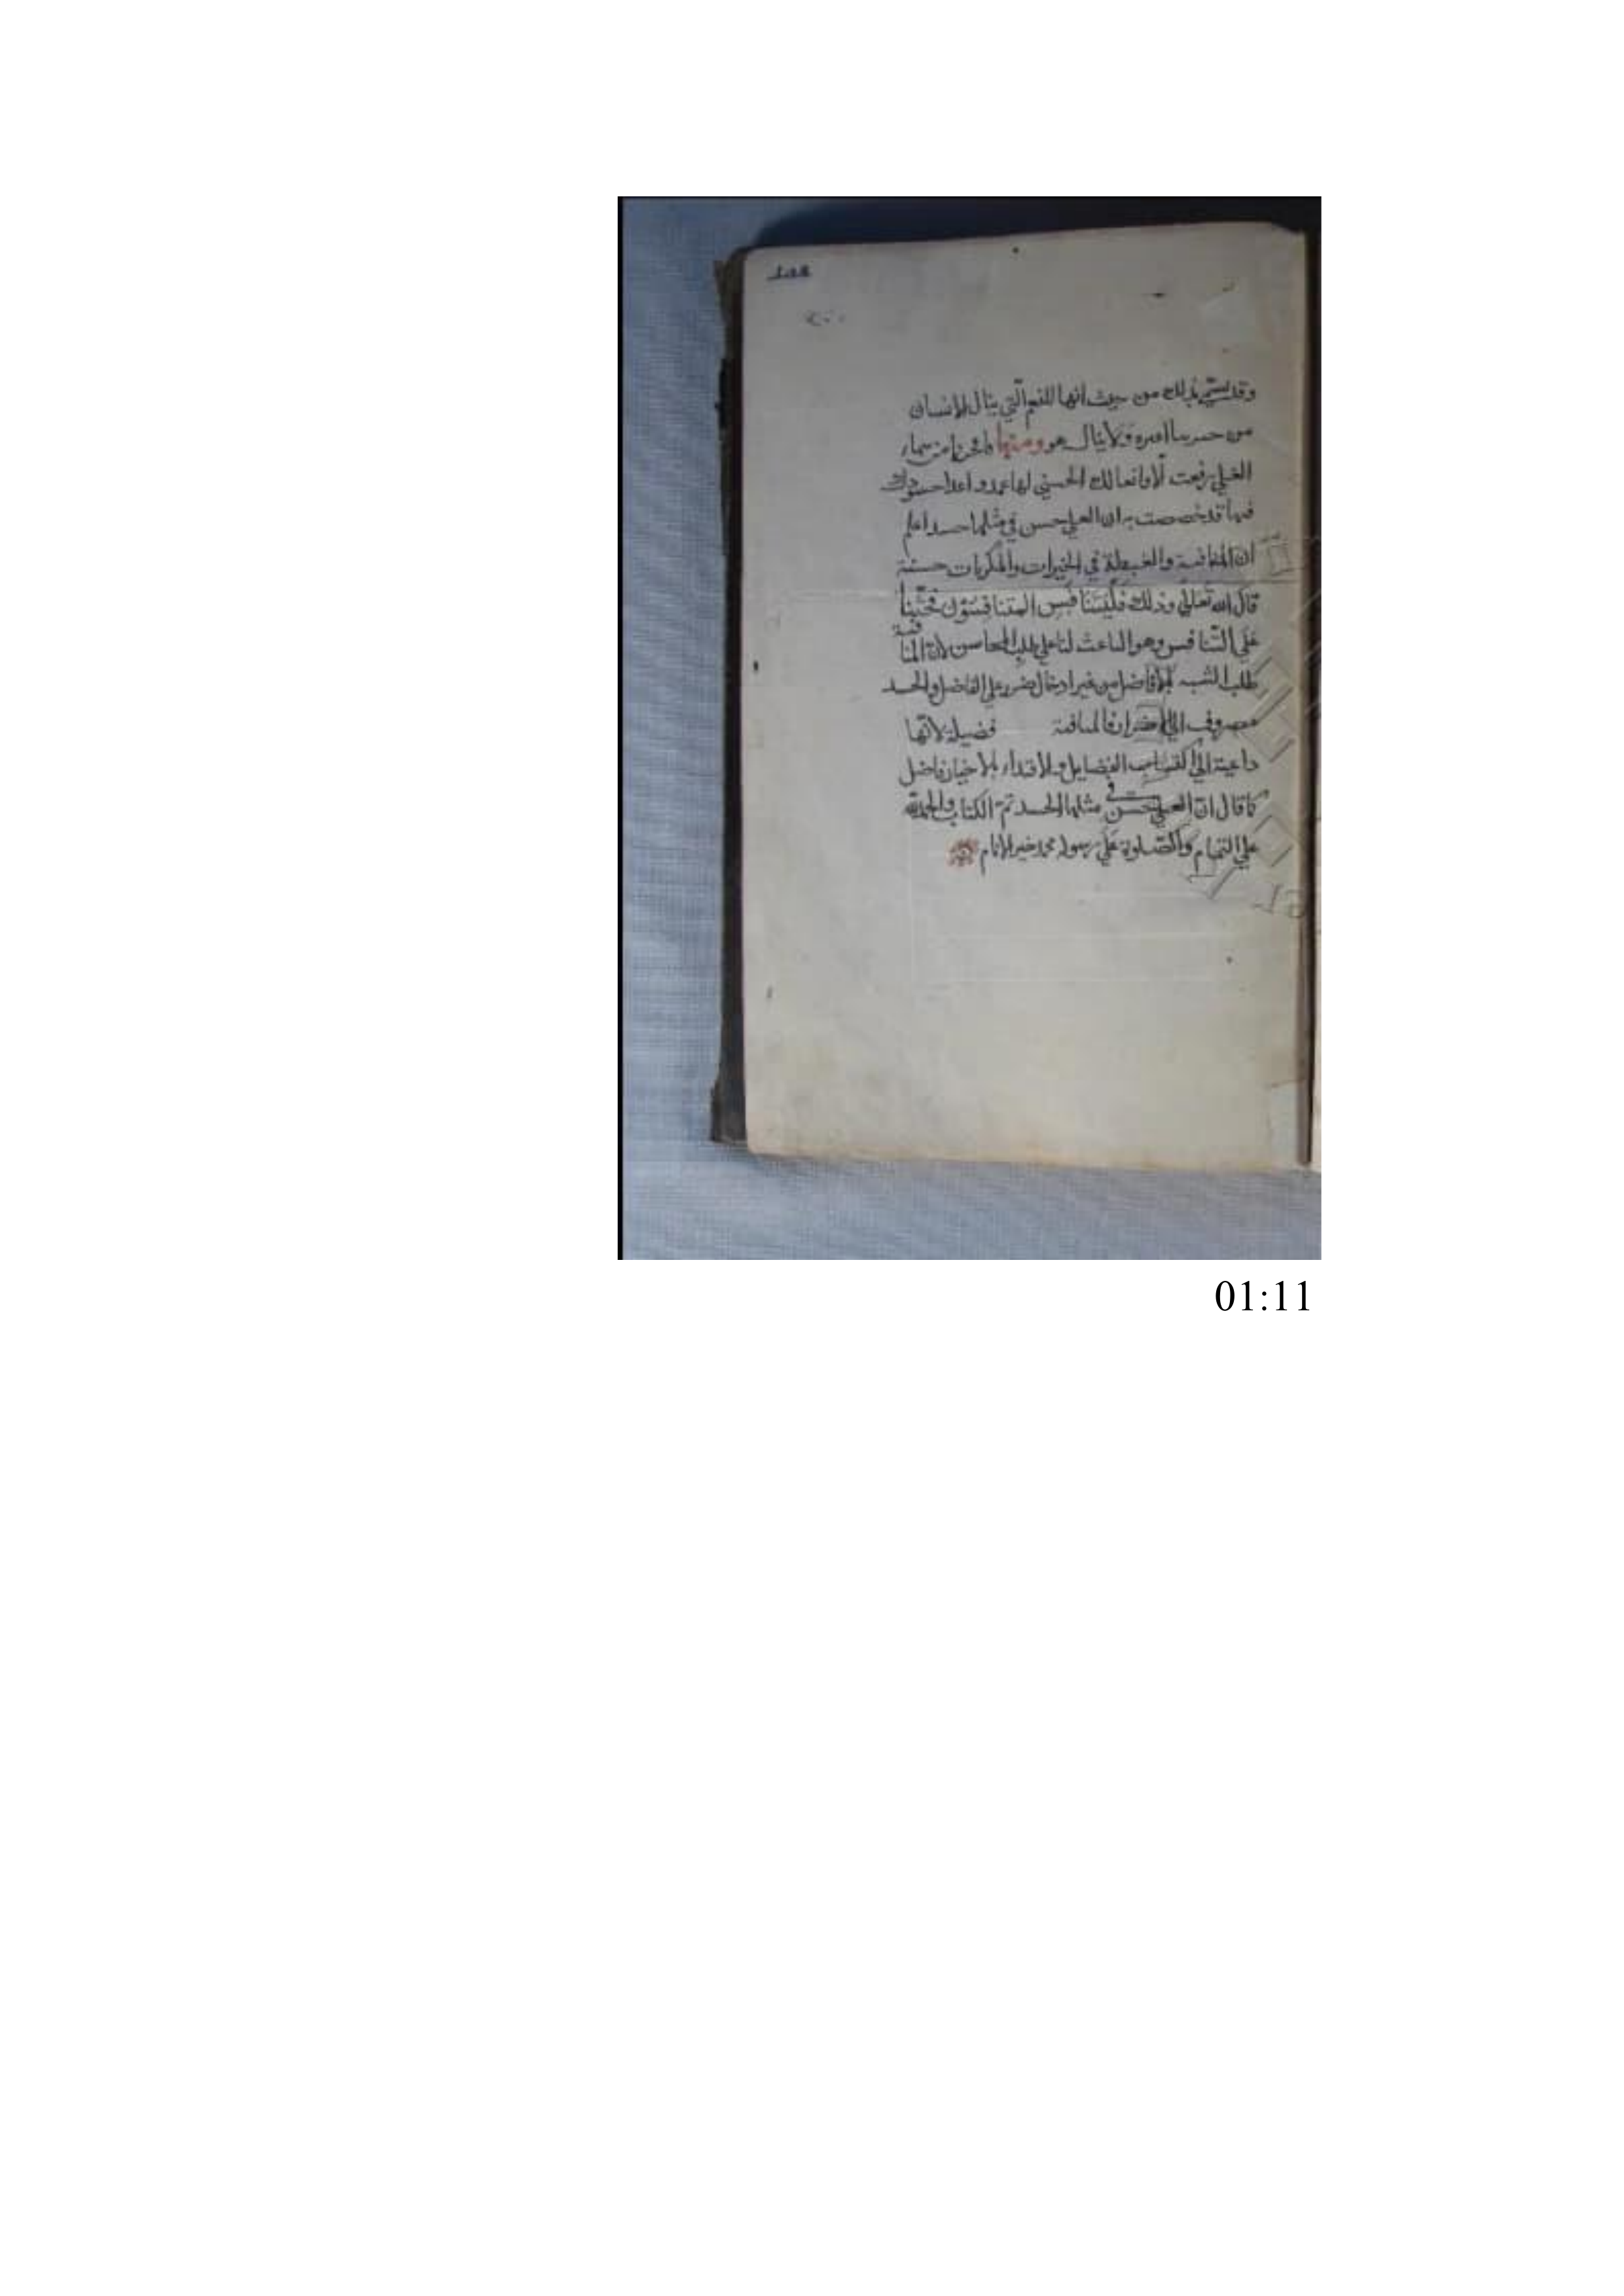 وقد يسمّي بذلك من حيث أنها للنعم الّتي ينال الإنسان
من ولا ينال هو ومنها من سماء
العلي رفعت لك الحسني لها عمد و
فيما قد خصصت به ان العلي حسن في مثلها حسد اعلم
ان المنافسة والغبطة في الخيرات والمكرمات حسنة
قال الله تَعَالي وذلك فَلْيَتَنَافَسِ المتنافِسُوْن فحَثّنا
عَلَي التّنافس وهو الباعث لنا علي طلب المحاسن لانّ المنافسة
طلب التشبه بالأفاضل من غير ادخال ضرر علي الفاضل والحسد
مصروف الي الضرر ان فالمنافسة فضيلة لأنّها
داعية الي اكتساب الفضايل والاقتداء بالأخيار
كما قال انّ العلي حسن في مثلها الحسد تمّ الكتاب والحمد لله
علي التمام والصّلوة عَلَي رسوله محمد خير الانام
01:11